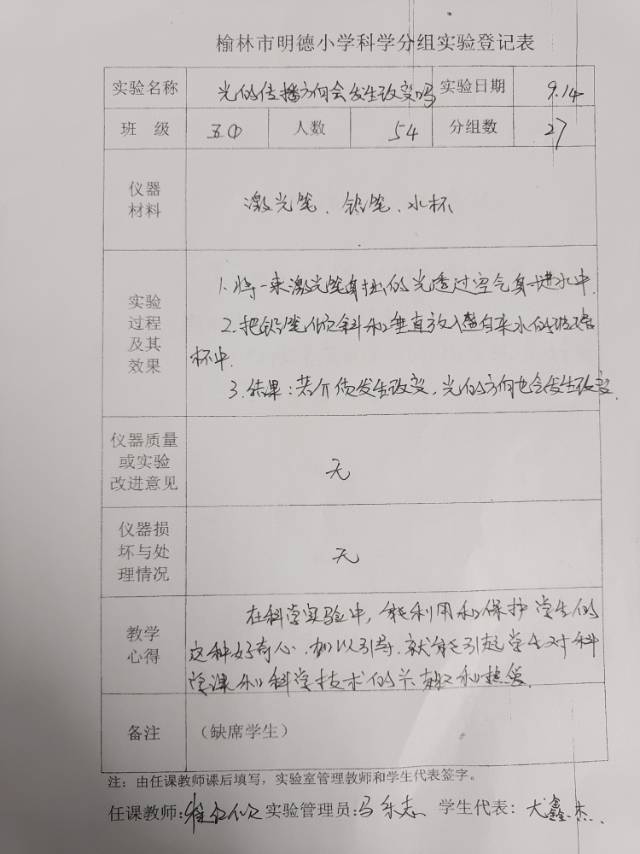 榆林市明德小学科学分组实验登记表
实验名称 光的传播方向会发生改变吗 实验日期 9.14
班 级 五④ 人数 54 分组数 27
仪器
材料
激光笔、铅笔、水杯
实验
过程
及其
效果
1.将一束激光笔射出的光透过空气射进水中.
2.把铅笔倾斜和垂直放入盛自来水的玻璃
杯中.
3.结果:若介质发生改变,光的方向也会发生改变.
仪器质量
或实验
改进意见
无
仪器损
坏与处
理情况
无
教学
心得
在科学实验中,能利用和保护学生的
这种好奇心.加以引导.就能引起学生对科
学课和科学技术的兴趣和热爱.
备注 (缺席学生)
注:由任课教师课后填写,实验室管理教师和学生代表签字。
任课教师: 实验管理员:马 学生代表: 鑫杰.